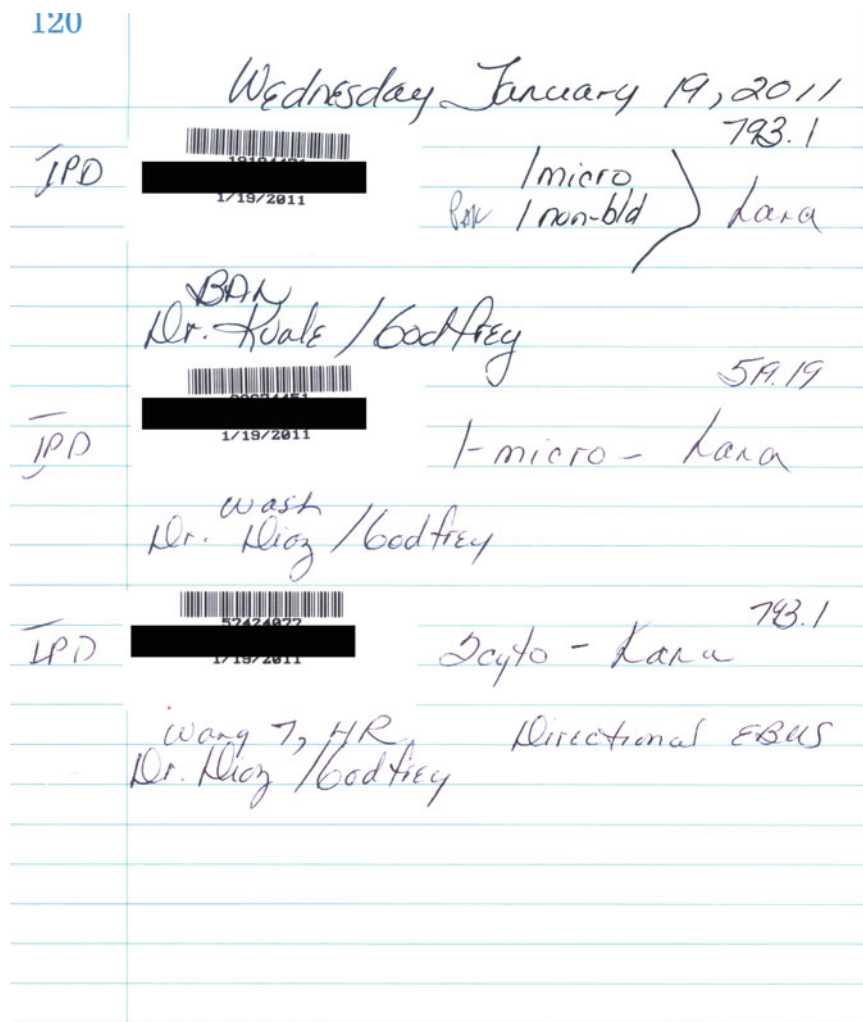 120
Wednesday January 19, 2011
793.1
IPD
1/19/2011
1 micro
1 non-bld
BAL
Dr. Kvale / Godfrey
519.19
IPD
1/19/2011
1-micro - Lana
wash
Dr. Diaz / Godfrey
793.1
IPD
57424077
1/19/2011
2cyto - Kara
Wang 7, HR Directional EBUS
Dr. Diaz / Godfrey